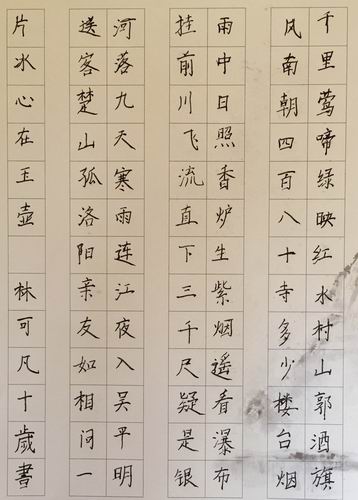 千里莺啼绿映红水村山郭酒旗
风南朝四百八十寺多少楼台烟
雨中日照香炉生紫烟遥看瀑布
挂前川飞流直下三千尺疑是银
河落九天寒雨连江夜入吴平明
送客楚山孤洛阳亲友如相问一
片冰心在玉壶 林可凡十歲書